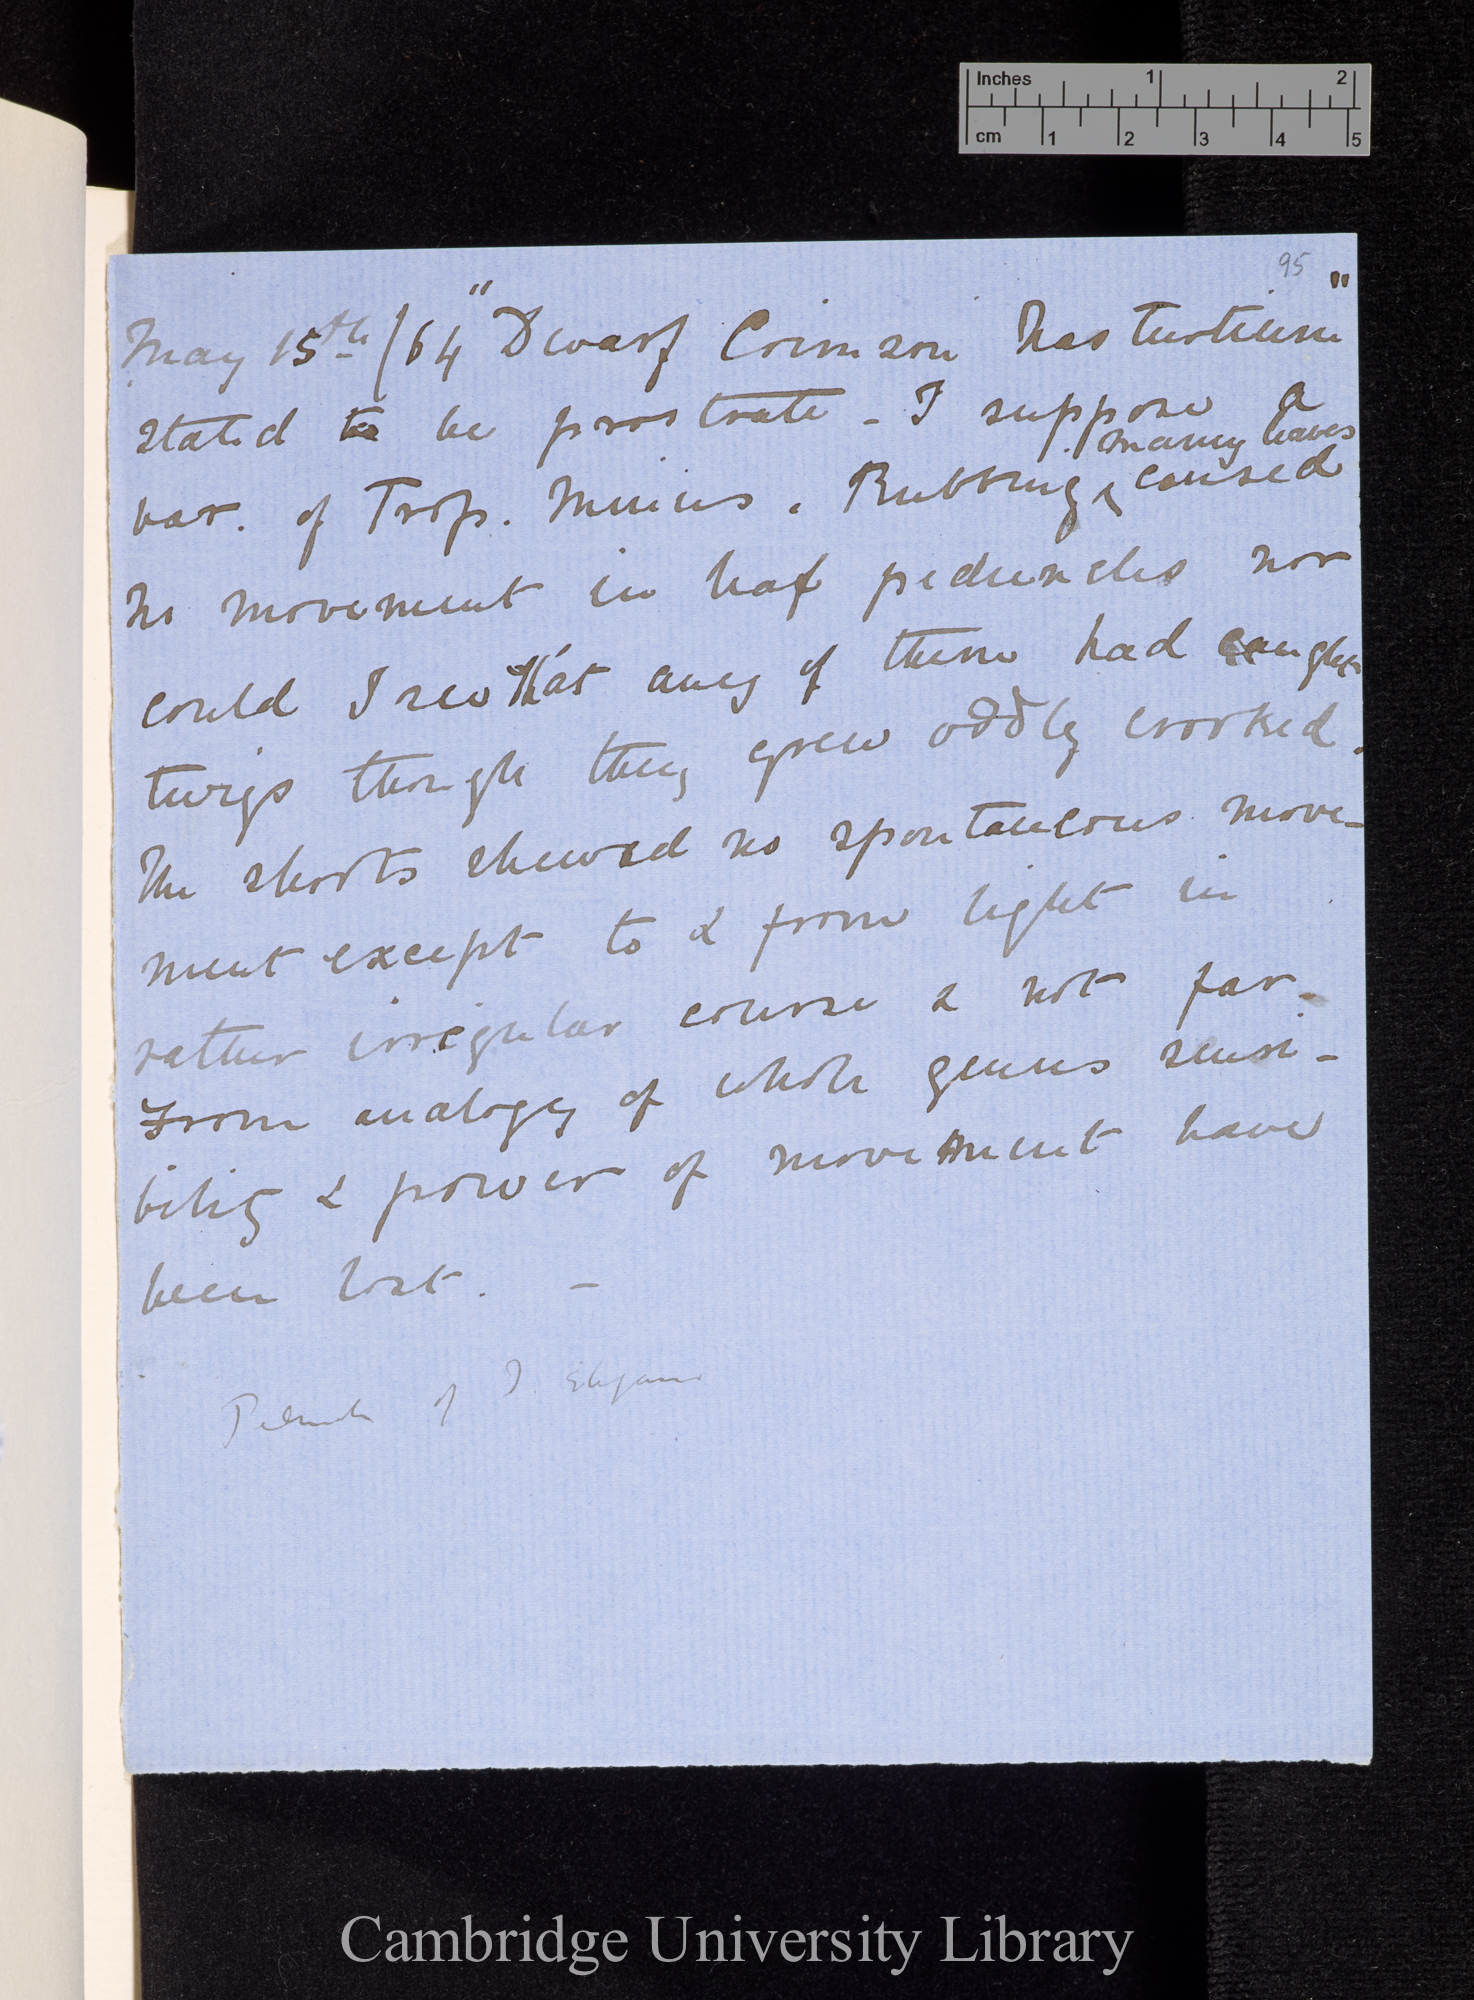 Inches 1 2
cm 1 2 3 4 5
95
May 15th/64 "Dwarf Crimson Nasturtium"
stated to be prostrate - I suppose a
many leaves
var. of Trop. Minus. Rubbing caused
no movement in leaf peduncles nor
could I see that any of them had caught
twigs though they grew oddly crooked.
The shoots shewed no spontaneous move-
ment except to & from light in
rather irregular course & not far.
From analogy of whole genus sensi-
bility & power of movement have
been lost. —
Peduncle of T. Elegans
Cambridge University Library